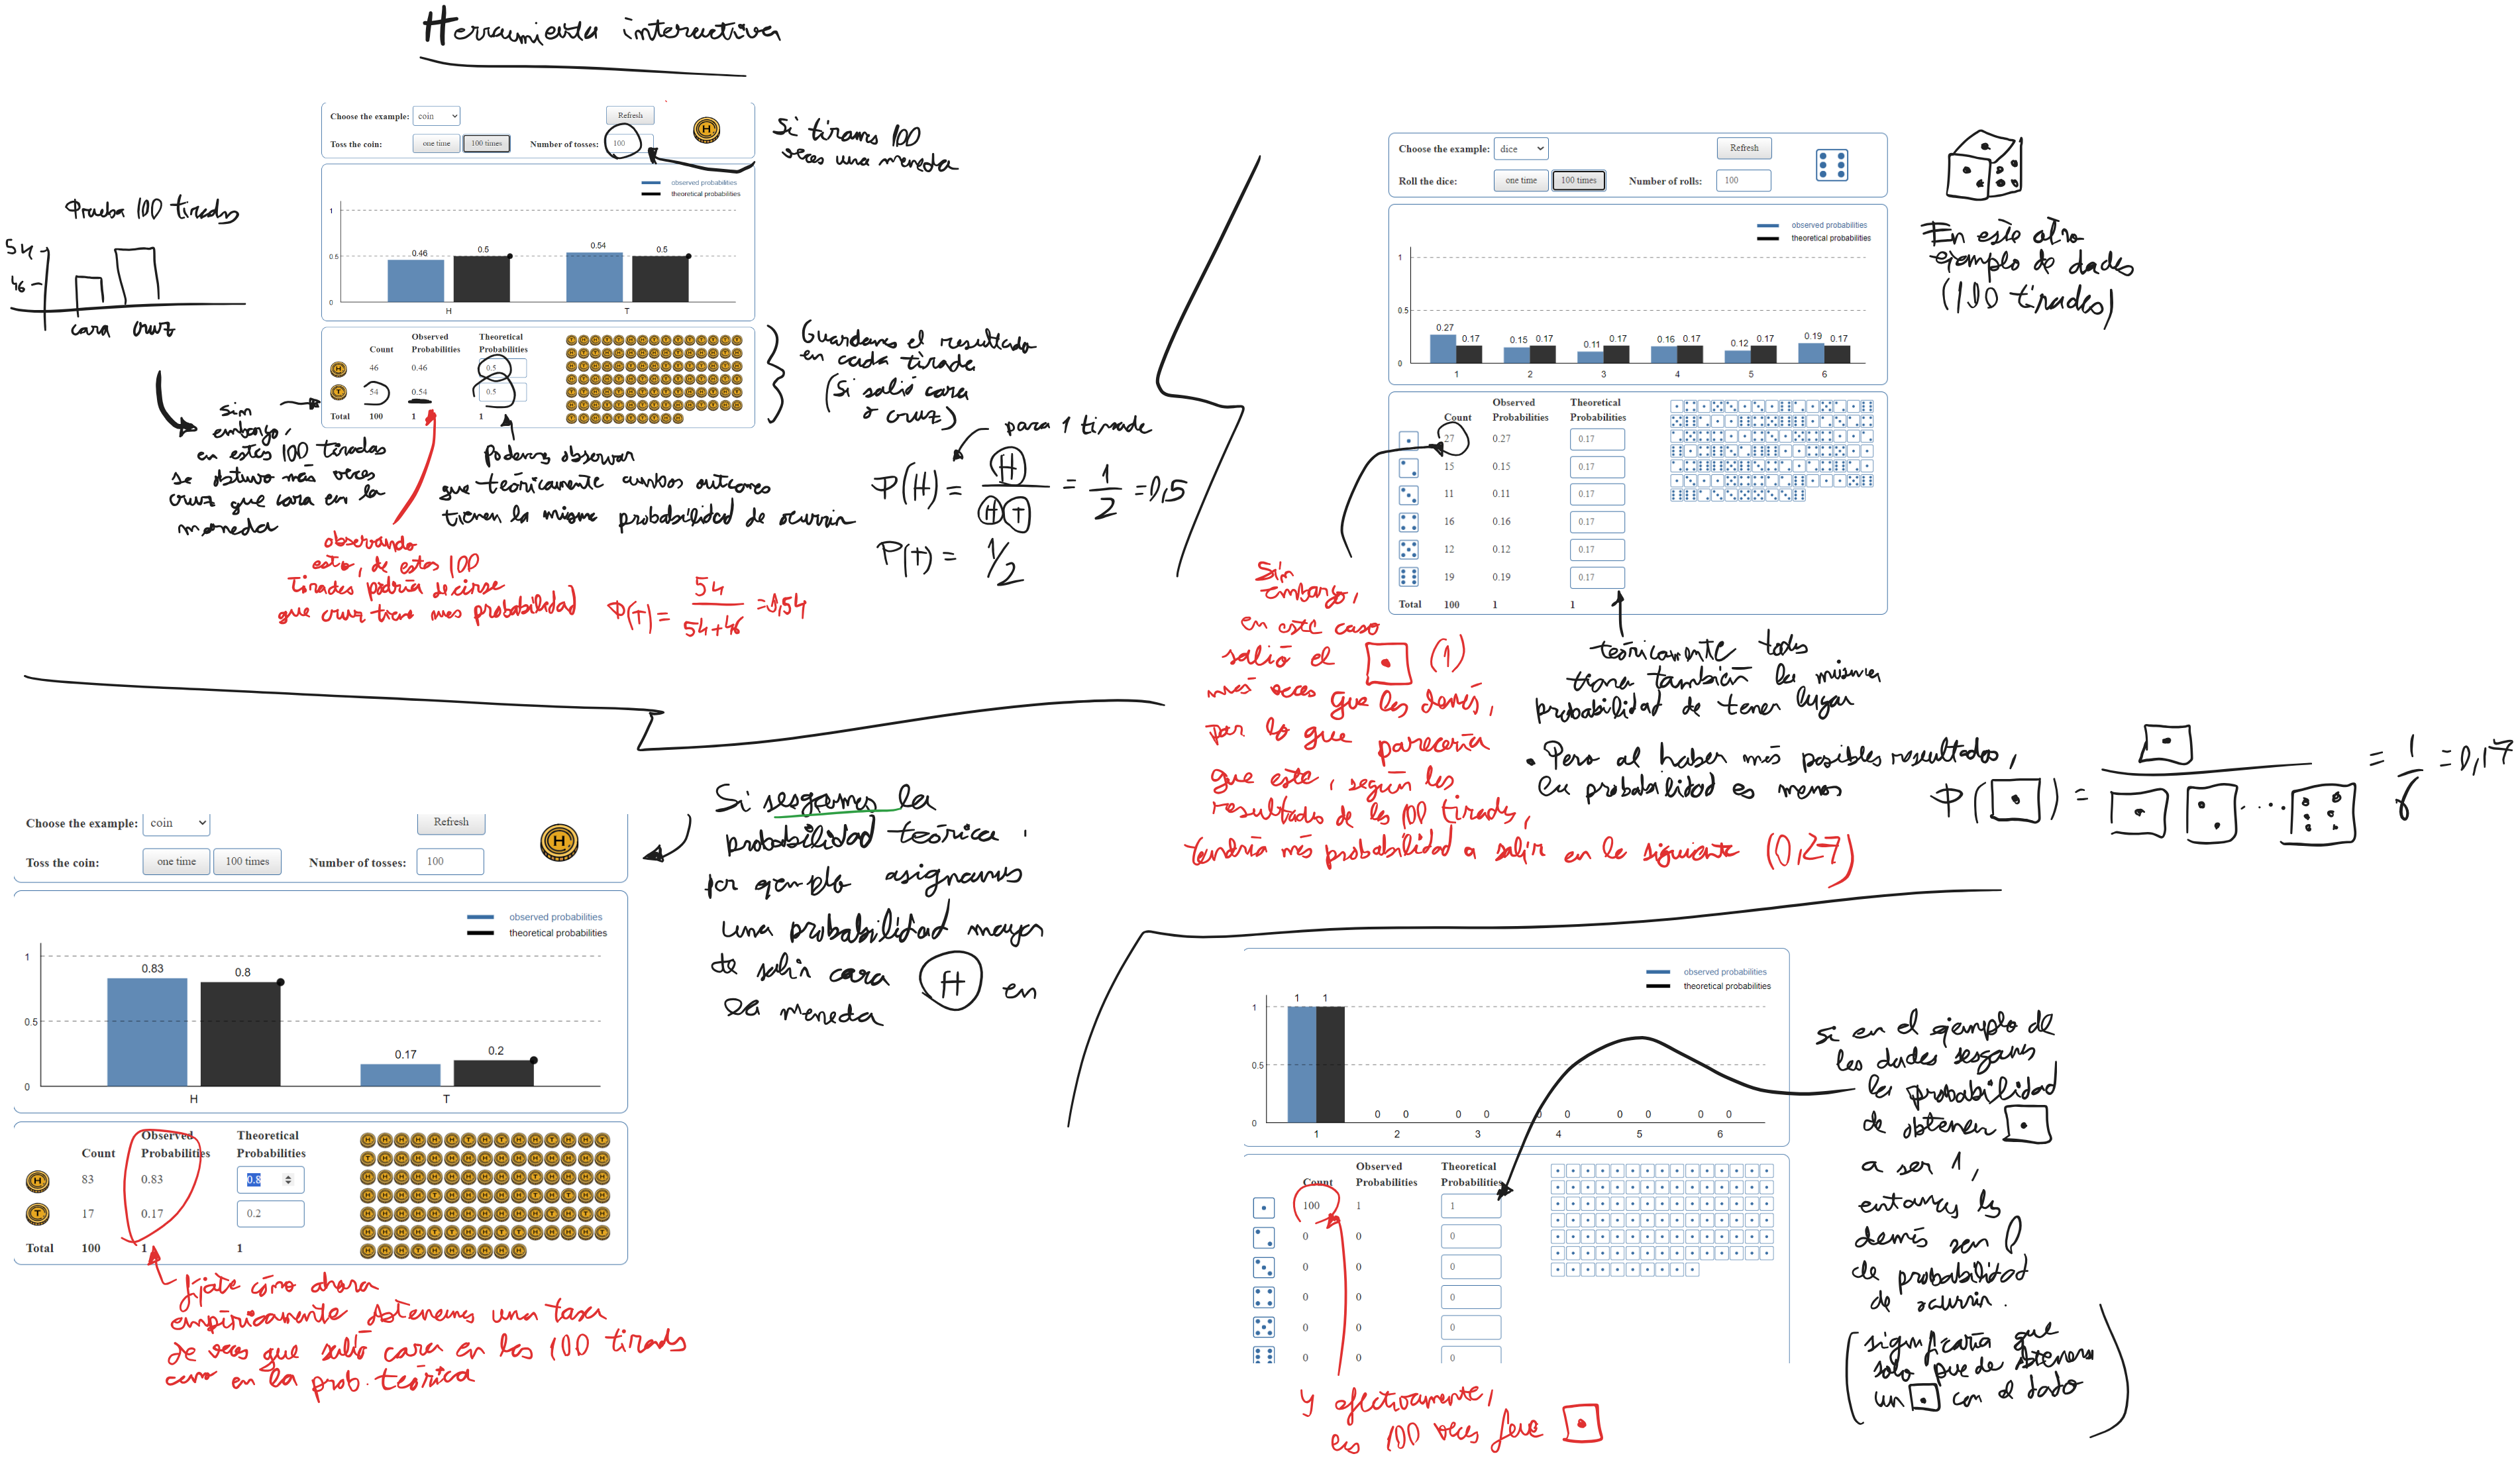 Herramienta interactiva
Choose the example: coin
Refresh
Toss the coin: one time 100 times Number of tosses: 100
H
Si tiramos 100
veces una moneda
observed probabilities
theoretical probabilities
1
0.5
0
0.46 0.5 0.54 0.5
H T
Prueba 100 tiradas
54
46
cara cruz
Count Observed Probabilities Theoretical Probabilities
H 46 0.46 0.5
T 54 0.54 0.5
Total 100 1 1
Guardamos el resultado
en cada tirada
(Si salió cara
o cruz)
sim
embargo,
en estas 100 tiradas
se obtuvo más veces
cruz que cara en la
moneda
Podemos observar
que teóricamente ambos outcomes
tienen la misma probabilidad de ocurrir
para 1 tirada
P(H) = H / H T = 1/2 = 0,5
P(T) = 1/2
observando
esto, de estas 100
tiradas podría decirse
que cruz tiene mas probabilidad
P(T) = 54 / 54+46 = 0,54
Choose the example: dice
Refresh
Roll the dice: one time 100 times Number of rolls: 100
En este otro
ejemplo de dados
(100 tiradas)
observed probabilities
theoretical probabilities
1
0.5
0
0.27 0.17 0.15 0.17 0.11 0.17 0.16 0.17 0.12 0.17 0.19 0.17
1 2 3 4 5 6
Count Observed Probabilities Theoretical Probabilities
27 0.27 0.17
15 0.15 0.17
11 0.11 0.17
16 0.16 0.17
12 0.12 0.17
19 0.19 0.17
Total 100 1 1
Sin
embargo,
en este caso
salió el (1)
mas veces que los demás,
por lo que parecería
que este, según los
resultados de las 100 tiradas,
tendría más probabilidad a salir en la siguiente (0,27)
teóricamente todos
tiene también la misma
probabilidad de tener lugar
• Pero al haber más posibles resultados,
la probabilidad es menos
P( ) = ···· = 1/6 = 0,17
Choose the example: coin
Refresh
Toss the coin: one time 100 times Number of tosses: 100
H
Si sesgamos la
probabilidad teórica,
por ejemplo asignamos
una probabilidad mayor
de salir cara H en
la moneda
observed probabilities
theoretical probabilities
1
0.5
0
0.83 0.8 0.17 0.2
H T
Count Observed Probabilities Theoretical Probabilities
H 83 0.83 0.8
T 17 0.17 0.2
Total 100 1 1
fíjate cómo ahora
empíricamente obtenemos una tasa
de veces que salió cara en las 100 tiradas
como en la prob. teórica
observed probabilities
theoretical probabilities
1
0.5
0
1 1 0 0 0 0 0 0 0 0 0 0
1 2 3 4 5 6
Count Observed Probabilities Theoretical Probabilities
100 1 1
0 0 0
0 0 0
0 0 0
0 0 0
0 0 0
Si en el ejemplo de
los dados sesgamos
la probabilidad
de obtener
a ser 1,
entonces los
demás son 0
de probabilidad
de ocurrir.
(significaría que
solo puede obtener
un con el dado)
y efectivamente,
las 100 veces fue